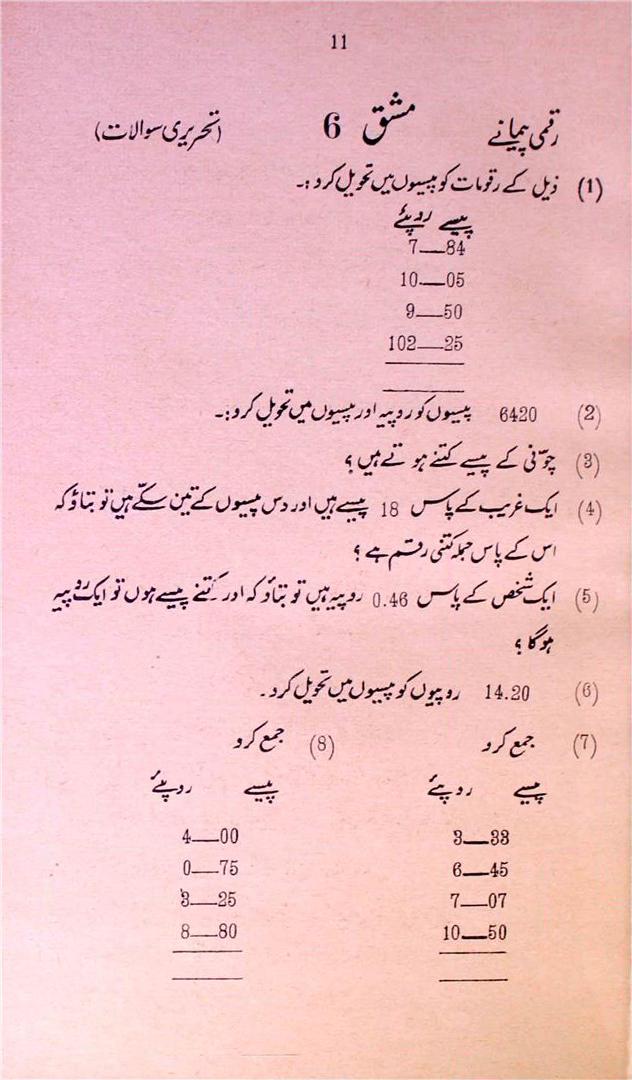 11
رقمی پیمانے مشق 6 (تحریری سوالات)
(1) ذیل کے رقومات کو پیسیوں میں تحویل کرو :۔
پیسے روپئے
7—84
10—05
9—50
102—25
(2) 6420 پیسیوں کو روپیہ اور پیسیوں میں تحویل کرو :۔
(3) چونّی کے پیسے کتنے ہوتے ہیں ؟
(4) ایک غریب کے پاس 18 پیسے ہیں اور دس پیسیوں کے تین سکّے ہیں تو بتاؤ کہ
اس کے پاس جملہ کتنی رقم ہے ؟
(5) ایک شخص کے پاس 0.46 روپیہ ہیں تو بتاؤ کہ اور کتنے پیسے ہوں تو ایک روپیہ
ہوگا ؟
(6) 14.20 روپیوں کو پیسیوں میں تحویل کرو ۔
(7) جمع کرو
پیسے روپئے
3—33
6—45
7—07
10—50
(8) جمع کرو
پیسے روپئے
4—00
0—75
3—25
8—80